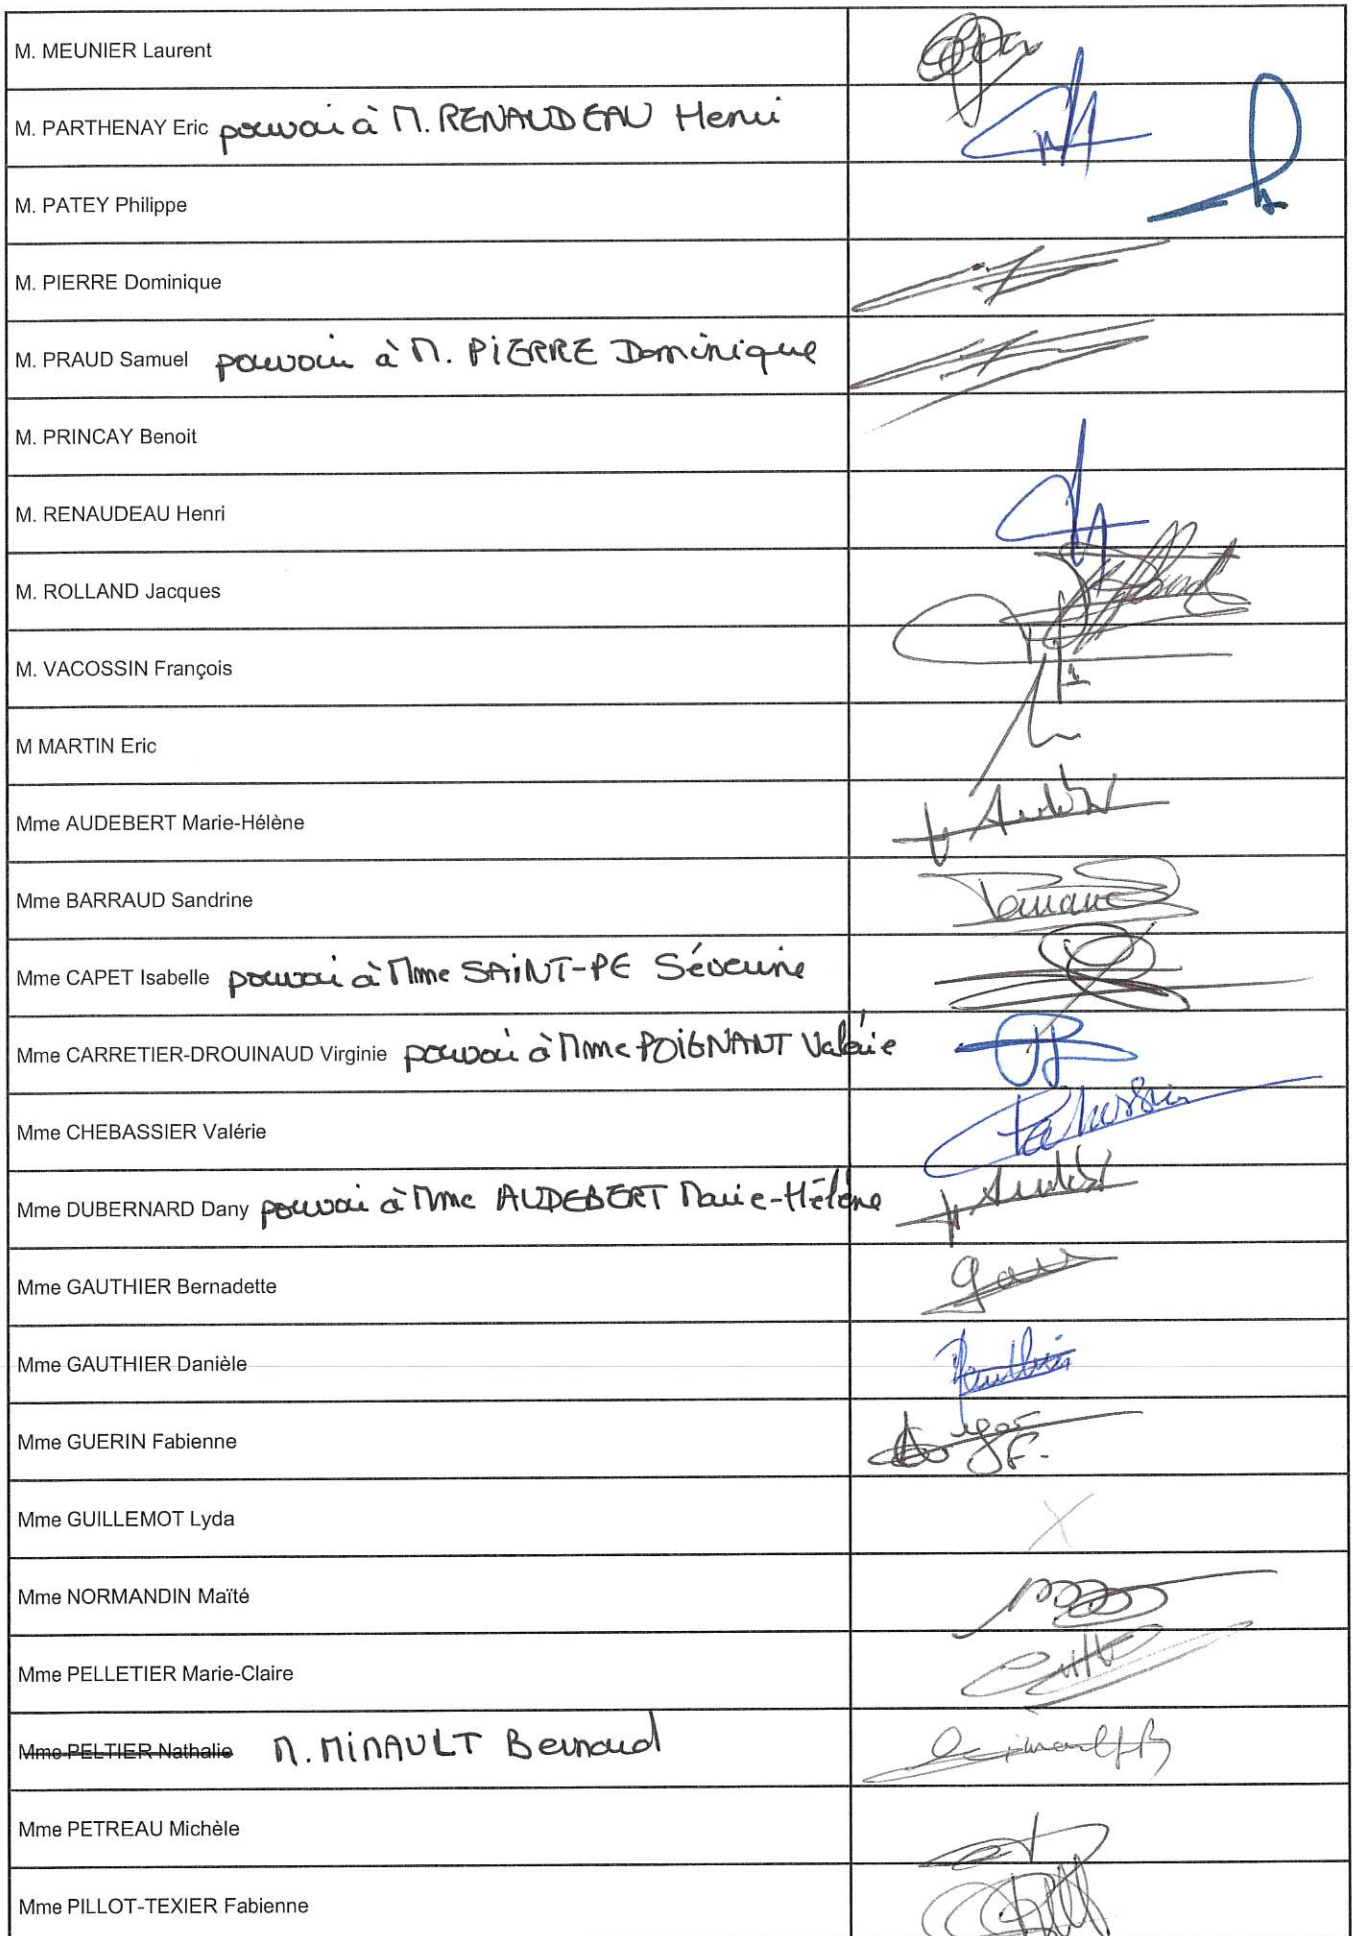 M. MEUNIER Laurent
M. PARTHENAY Eric pouvoir à M. RENAUDEAU Henri
M. PATEY Philippe
M. PIERRE Dominique
M. PRAUD Samuel pouvoir à M. PIERRE Dominique
M. PRINCAY Benoit
M. RENAUDEAU Henri
M. ROLLAND Jacques
M. VACOSSIN François
M MARTIN Eric
Mme AUDEBERT Marie-Hélène
Mme BARRAUD Sandrine
Mme CAPET Isabelle pouvoir à Mme SAINT-PE Séverine
Mme CARRETIER-DROUINAUD Virginie pouvoir à Mme POIGNANT Valérie
Mme CHEBASSIER Valérie
Mme DUBERNARD Dany pouvoir à Mme AUDEBERT Marie-Hélène
Mme GAUTHIER Bernadette
Mme GAUTHIER Danièle
Mme GUERIN Fabienne
Mme GUILLEMOT Lyda
Mme NORMANDIN Maïté
Mme PELLETIER Marie-Claire
Mme PELTIER Nathalie M. MINAULT Bernard
Mme PETREAU Michèle
Mme PILLOT-TEXIER Fabienne